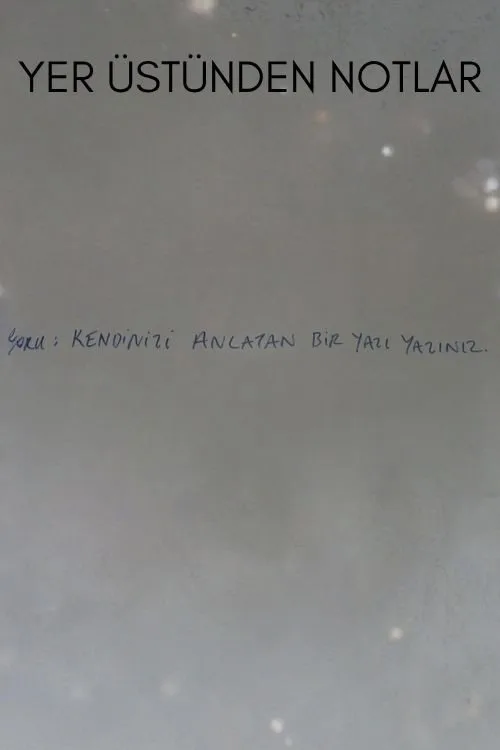 YER ÜSTÜNDEN NOTLAR
Soru: KENDİNİZİ ANLATAN BİR YAZI YAZINIZ.